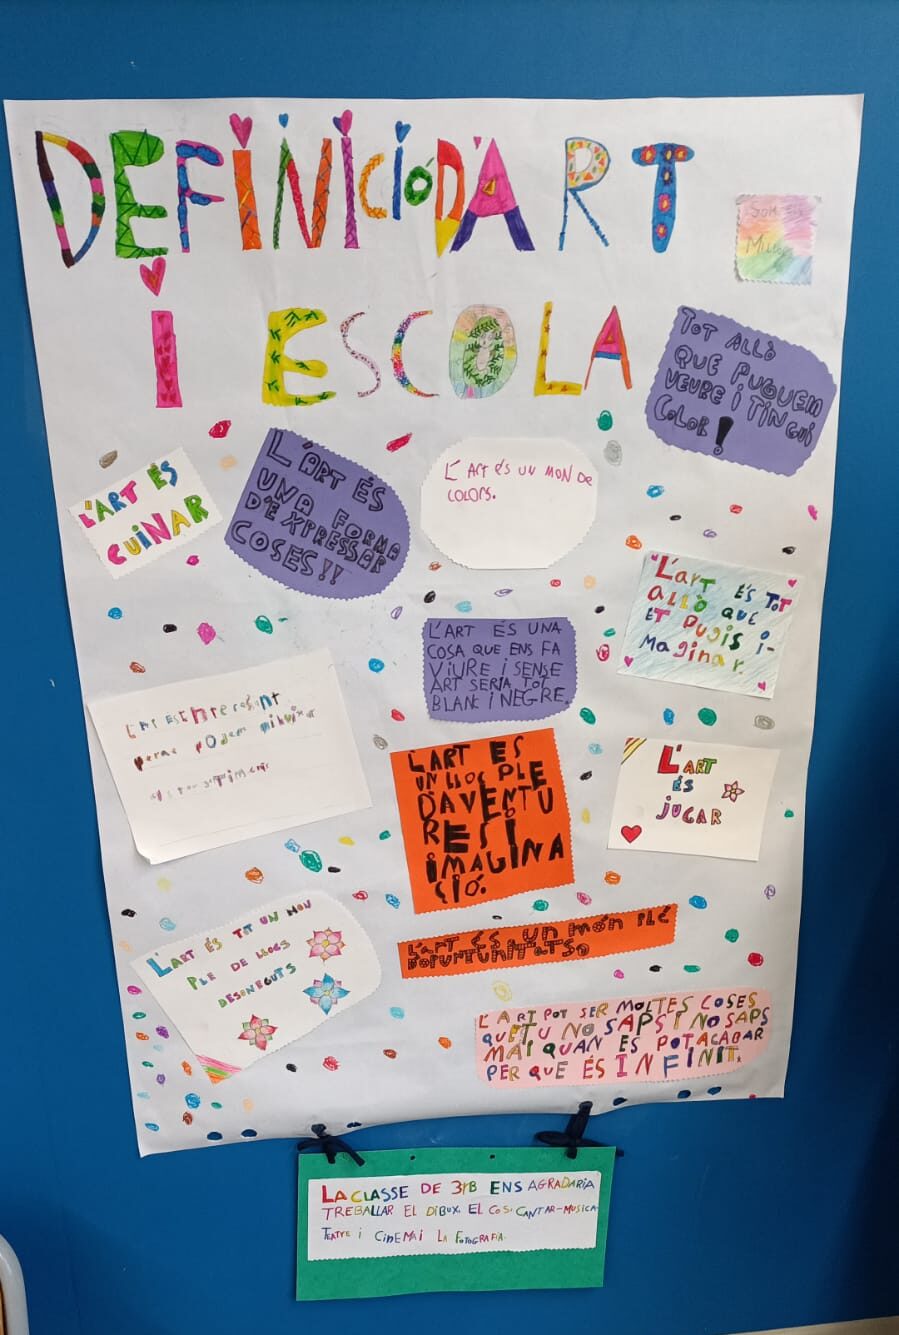 DEFINICIÓ D'ART
I ESCOLA
SOM ELS
MILLORS
TOT ALLÒ
QUE PUGUEM
VEURE I TINGUI
COLOR!
L'ART ÉS
CUINAR
L'ART ÉS
UNA FORMA
D'EXPRESSAR
COSES!!
L'ART ÉS UN MON DE
COLORS.
"L'ART ÉS TOT
ALLÒ QUE
ET PUGIS I-
MAGINAR.
L'ART ÉS UNA
COSA QUE ENS FA
VIURE I SENSE
ART SERIA TOT
BLANC I NEGRE.
L'ART
podem dibuixar
L'ART ES
UN LLOC PLE
D'AVENTU
RES I
IMAGINA
CIÓ.
L'ART
ÉS
JUGAR
L'ART ÉS TOT UN MON
PLE DE LLOCS
DESCNEGUTS
L'ART ÉS UN MÓN PLÉ
D'OPURTUNITATS
L'ART POT SER MOLTES COSES
QUE TU NO SAPS I NO SAPS
MAI QUAN ES POT ACABAR
PER QUE ÉS INFINIT.
LA CLASSE DE 3rB ENS AGRADARIA
TREBALLAR EL DIBUX, EL COS, CANTAR-MUSICA-
TEATRE I CINEMA I LA FOTOGRAFIA.